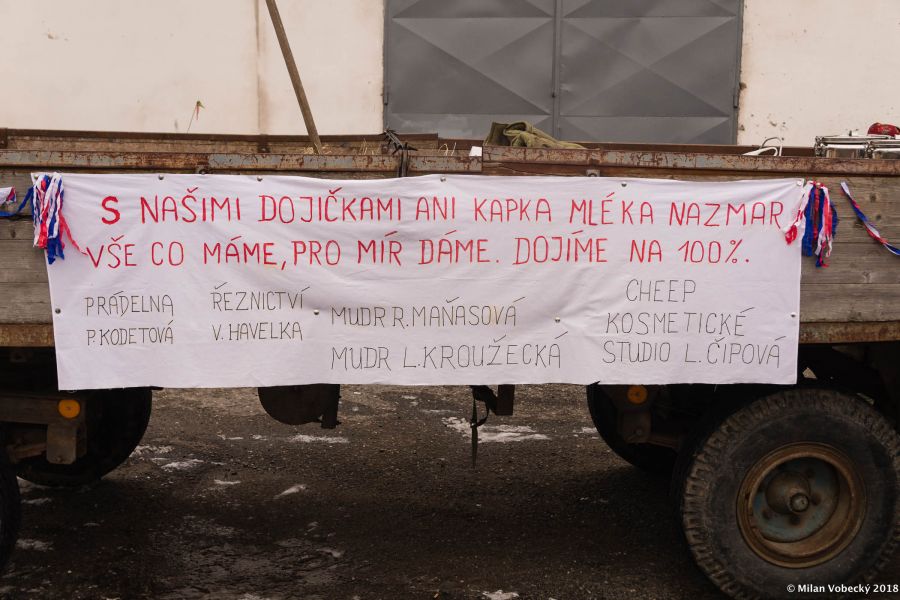 S NAŠIMI DOJIČKAMI ANI KAPKA MLÉKA NAZMAR
VŠE CO MÁME, PRO MÍR DÁME. DOJÍME NA 100%.
PRÁDELNA
P. KODETOVÁ
ŘEZNICTVÍ
V. HAVELKA
MUDR R. MAŇASOVÁ
MUDR L. KROUŽECKÁ
CHEEP
KOSMETICKÉ
STUDIO L. ČIPOVÁ
© Milan Vobecký 2018